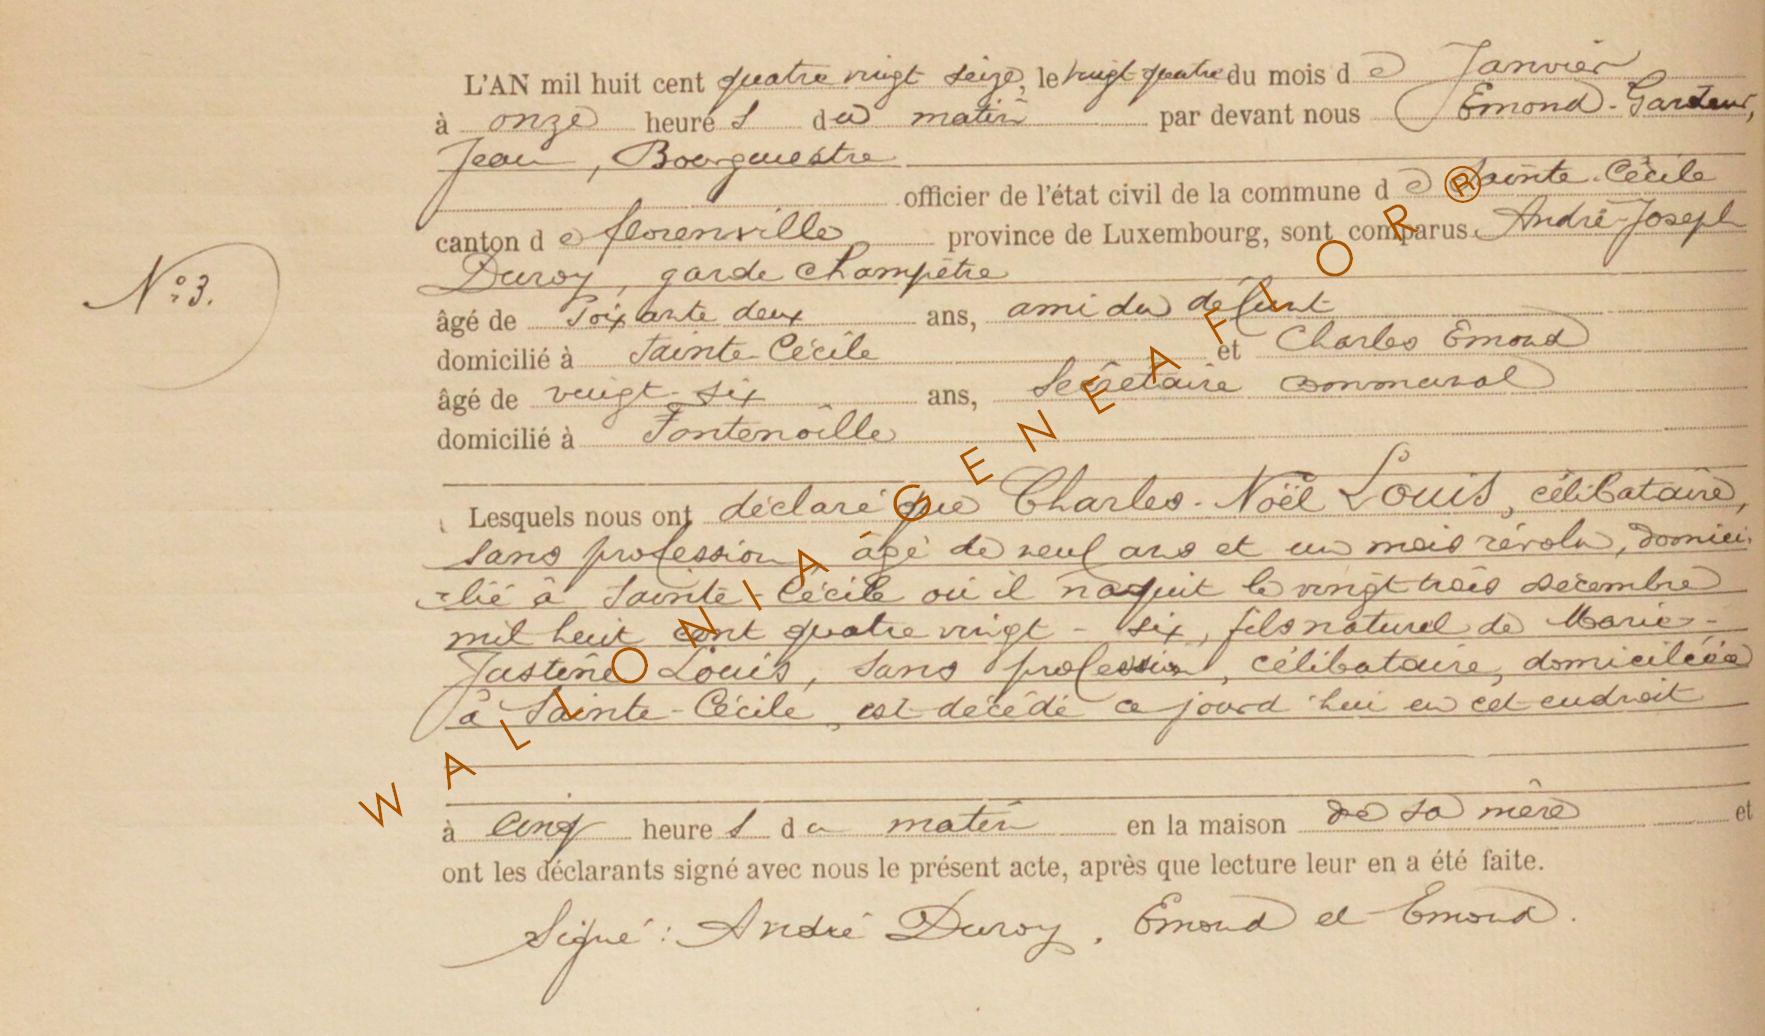 L'AN mil huit cent quatre vingt seize, le vingt quatre du mois de Janvier
à onze heures du matin par devant nous Emond-Gardeur,
Jean, Bourgmestre
officier de l'état civil de la commune de Sainte-Cécile
canton de florenville province de Luxembourg, sont comparus André-Joseph
Duroy, garde champêtre
N° 3.
âgé de soixante deux ans, ami du défunt
domicilié à Sainte-Cécile et Charles Emond
âgé de vingt-six ans, Secrétaire communal
domicilié à Fontenoille
Lesquels nous ont déclaré que Charles-Noël Louis, célibataire,
sans profession âgé de neuf ans et un mois révolu, domici-
-lié à Sainte-Cécile où il naquit le vingt trois décembre
mil huit cent quatre vingt-six, fils naturel de Marie-
Justine Louis, sans profession, célibataire, domiciliée
à Sainte-Cécile, est décédé ce jourd'hui en cet endroit
à cinq heures du matin en la maison de sa mère et
ont les déclarants signé avec nous le présent acte, après que lecture leur en a été faite.
Signé : André Duroy, Emond et Emond.
WALLONIA GENEAFLOR ®